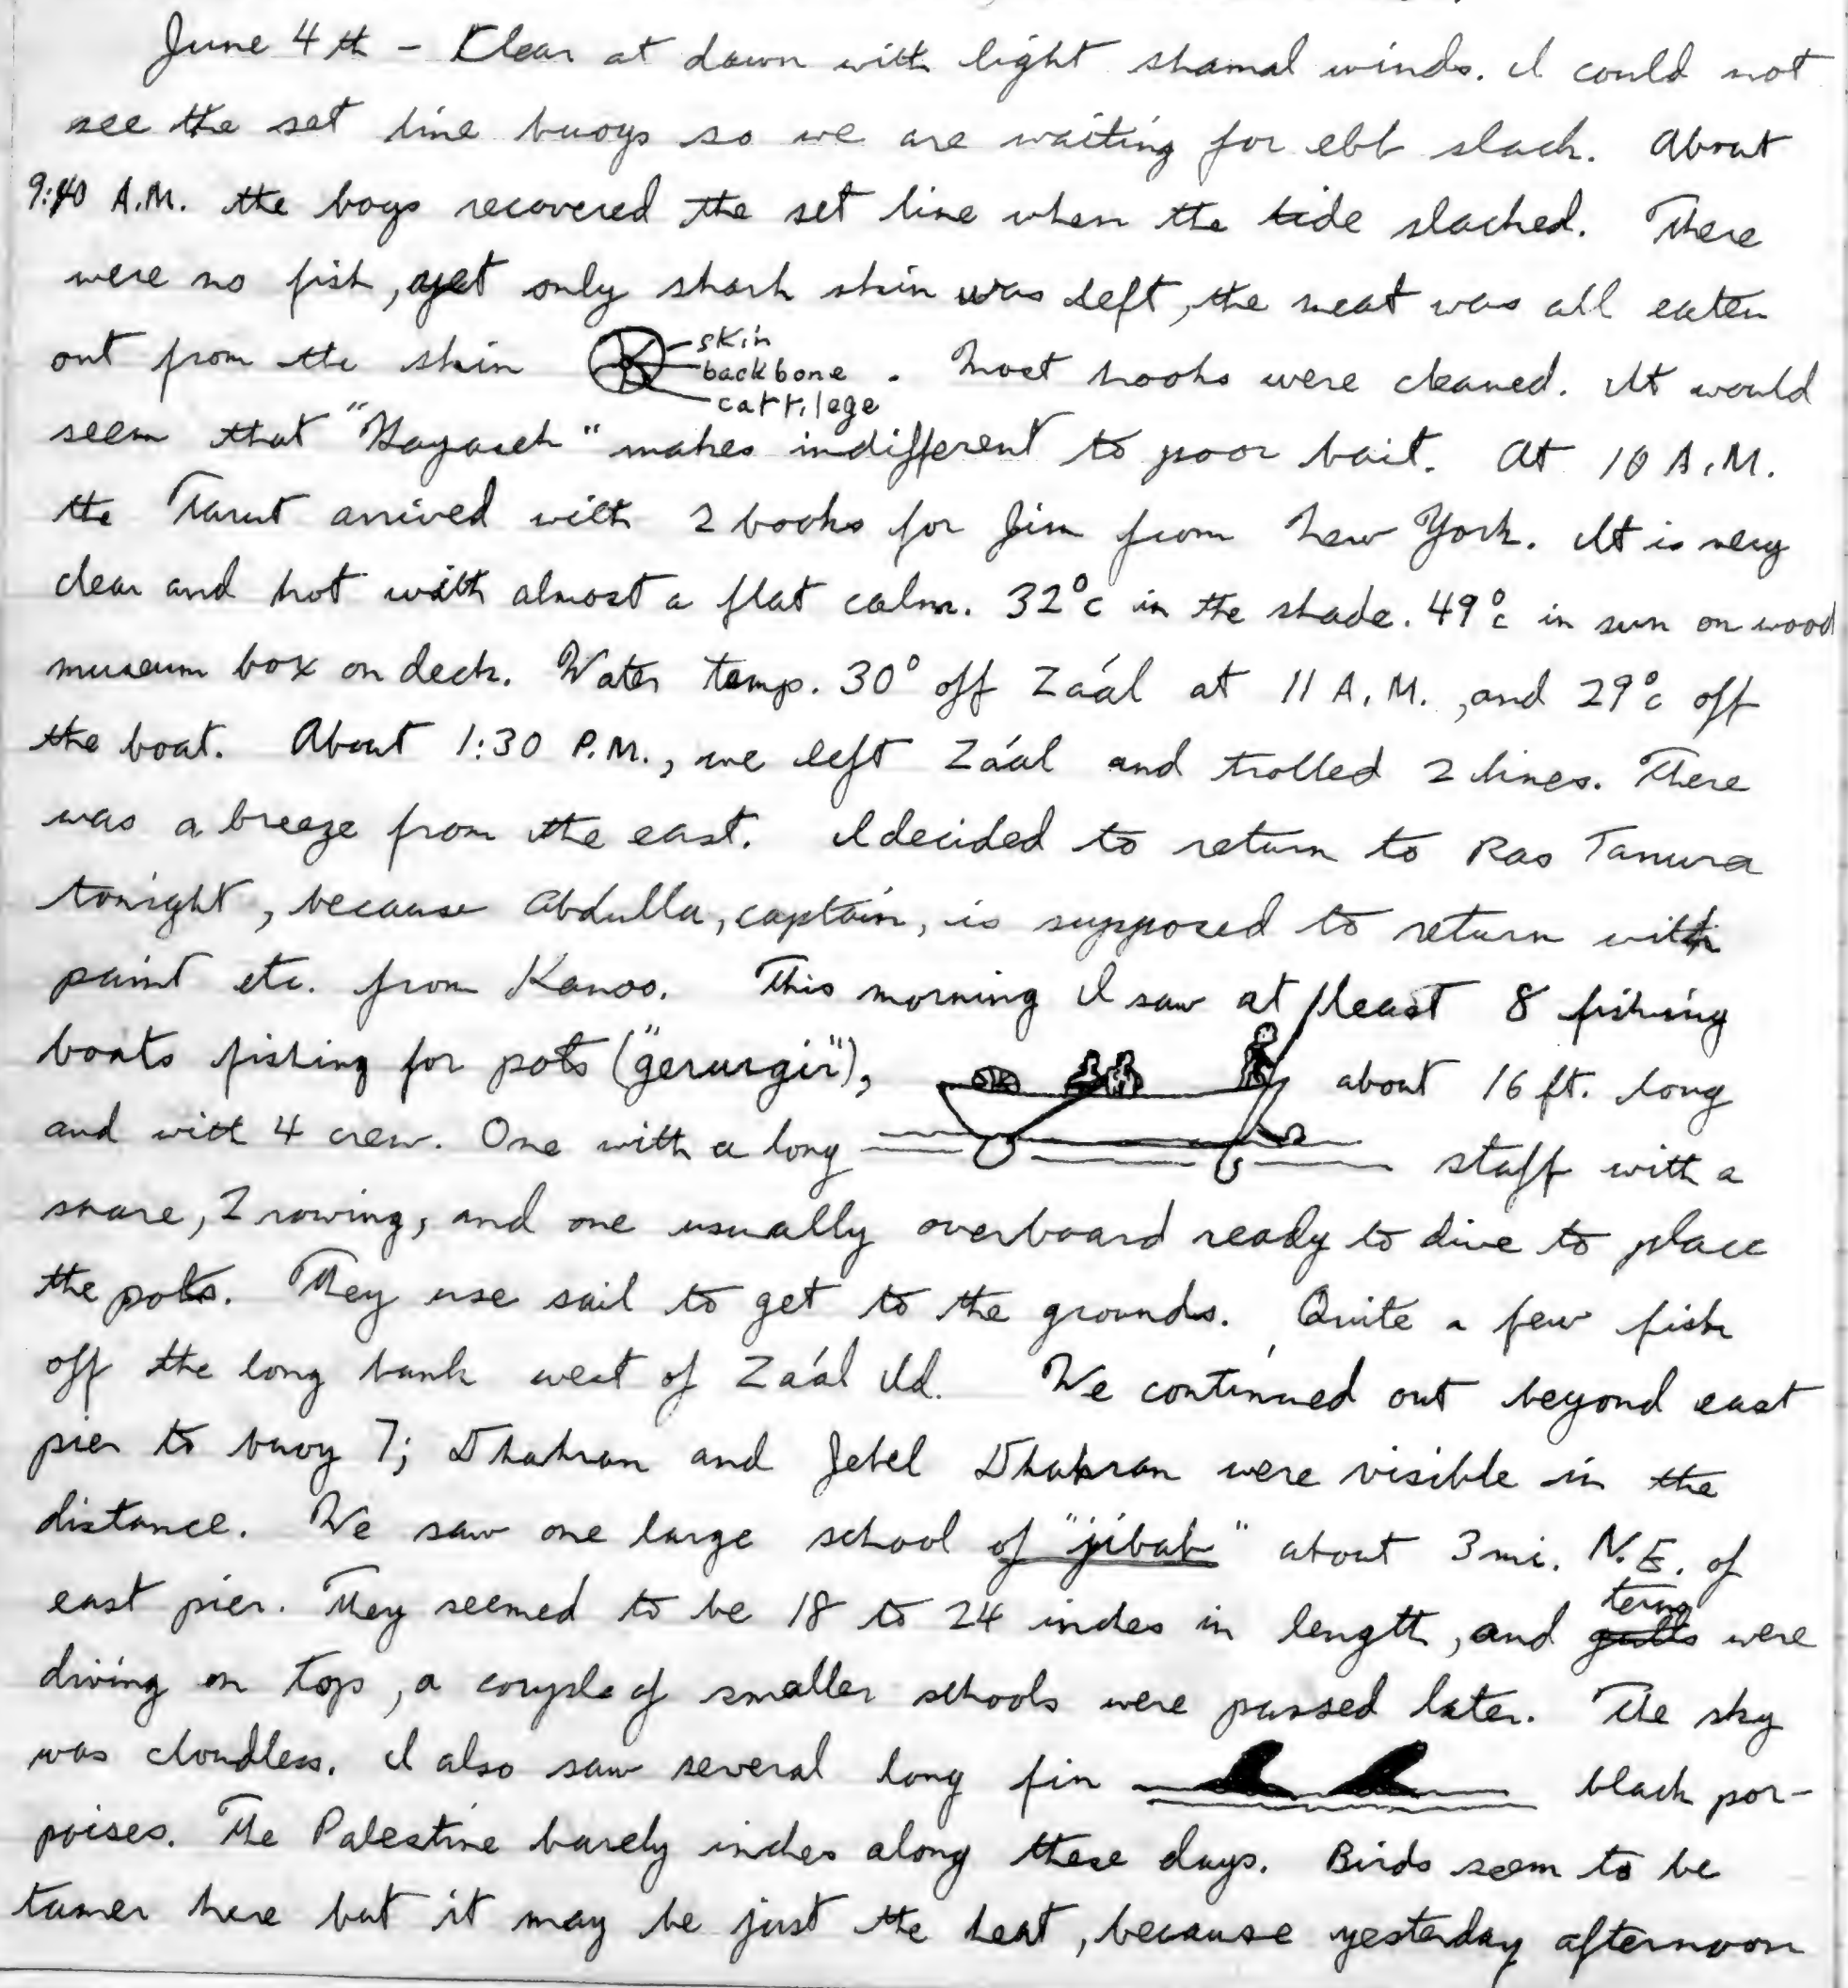 June 4th - Clear at dawn with light shamal winds. I could not
see the set line buoys so we are waiting for ebb slack. About
9:40 A.M. the boys recovered the set line when the tide slacked. There
were no fish, yet only shark skin was left, the meat was all eaten
out from the skin
skin
backbone
cartilege
. Most hooks were cleaned. It would
seem that " " makes indifferent to poor bait. At 10 A.M.
the Tarut arrived with 2 books for Jim from New York. It is very
clear and hot with almost a flat calm. 32°c in the shade. 49°c in sun on wood
museum box on deck. Water temp. 30° off Záál at 11 A.M., and 29°c off
the boat. About 1:30 P.M., we left Záál and trolled 2 lines. There
was a breeze from the east. I decided to return to Ras Tanura
tonight, because Abdulla, captain, is supposed to return with
paint etc. from Kanoo. This morning I saw at least 8 fishing
boats fishing for pots ("gerurgir"), about 16 ft. long
and with 4 crew. One with a long staff with a
snare, 2 rowing, and one usually overboard ready to dive to place
the pots. They use sail to get to the grounds. Quite a few fish
off the long bank west of Záál Id. We continued out beyond east
pier to buoy 7; Dhahran and Jebel Dhahran were visible in the
distance. We saw one large school of "jibab" about 3 mi. N.E. of
east pier. They seemed to be 18 to 24 inches in length, and gulls terns were
diving on top, a couple of smaller schools were passed later. The sky
was cloudless. I also saw several long fin black por-
poises. The Palestine barely inches along these days. Birds seem to be
tamer here but it may be just the heat, because yesterday afternoon